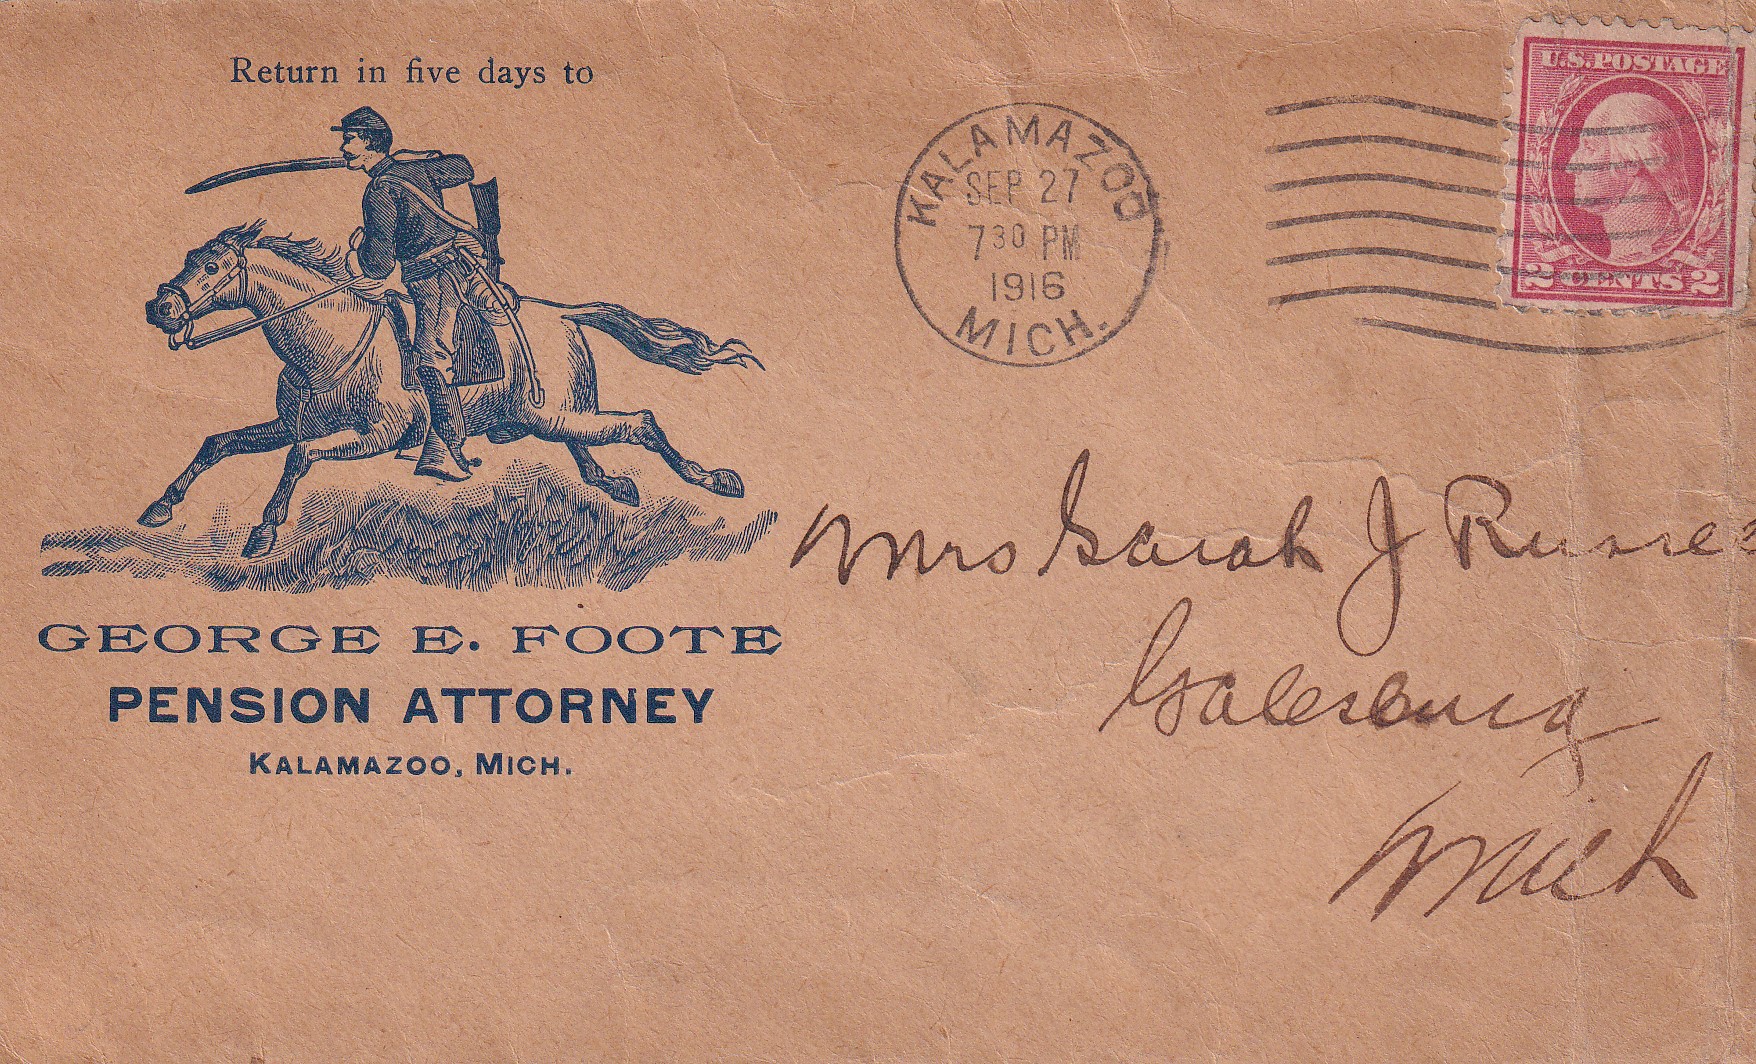 Return in five days to
GEORGE E. FOOTE
PENSION ATTORNEY
KALAMAZOO, MICH.
KALAMAZOO
SEP 27
7 30 PM
1916
MICH.
U.S. POSTAGE
2 CENTS 2
Mrs Sarah J
Galesburg
Mich